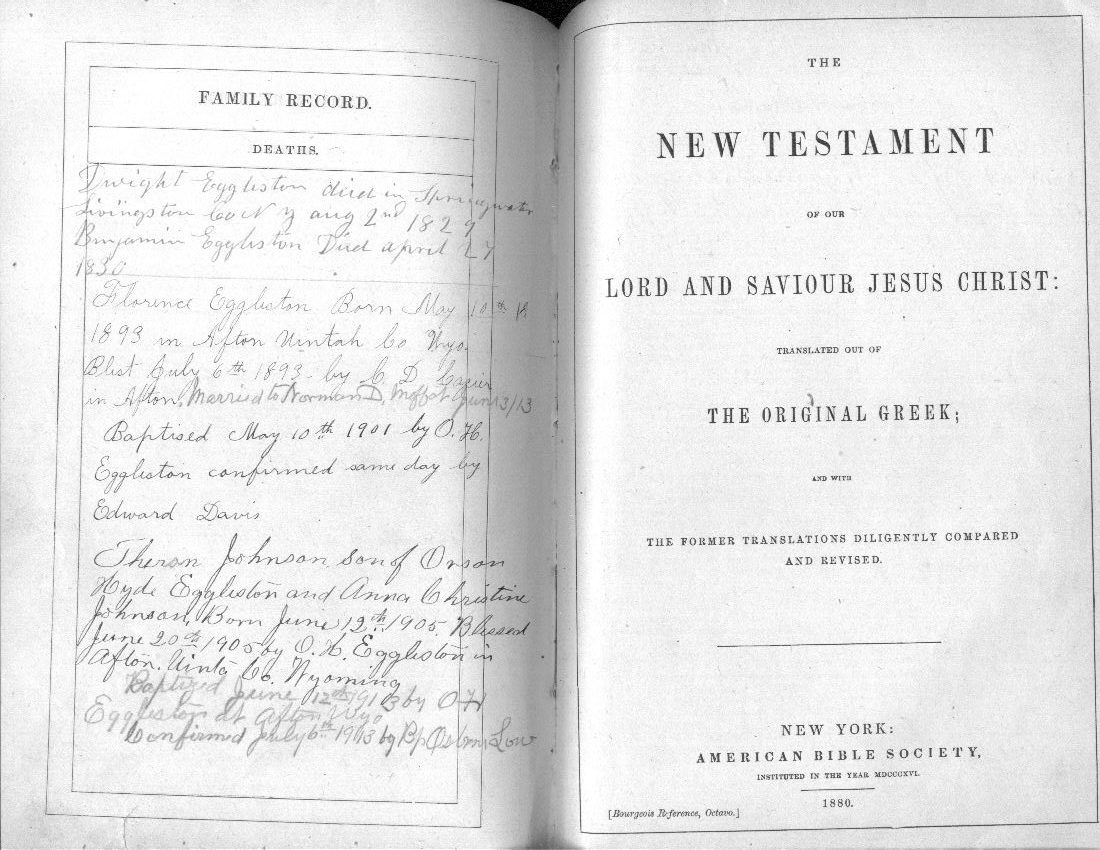 FAMILY RECORD.
DEATHS.
Dwight Eggleston died in Springwater
Livingston Co N Y aug 2nd 1829
Benjamin Eggleston Died april 27
1830
Florence Eggleston Born May 10th
1893 in Afton Uintah Co Wyo.
Blest July 6th 1893 by C D Cazier
in Afton, Married to Norman D. Moffat June 3/13
Baptised May 10th 1901 by O. H.
Eggleston confirmed same day by
Edward Davis
Theron Johnson son of Orson
Hyde Eggleston and Anna Christine
Johnson, Born June 12th 1905. Blessed
June 20th 1905 by O. H. Eggleston in
Afton. Uinta Co. Wyoming
Baptized June 12th 1913 by O H
Eggleston at Afton Wyo
Confirmed July 6th 1913 by Bp Osborne Low
THE
NEW TESTAMENT
OF OUR
LORD AND SAVIOUR JESUS CHRIST:
TRANSLATED OUT OF
THE ORIGINAL GREEK;
AND WITH
THE FORMER TRANSLATIONS DILIGENTLY COMPARED
AND REVISED.
NEW YORK:
AMERICAN BIBLE SOCIETY,
INSTITUTED IN THE YEAR MDCCCXVI.
1880.
[Bourgeois Reference, Octavo.]